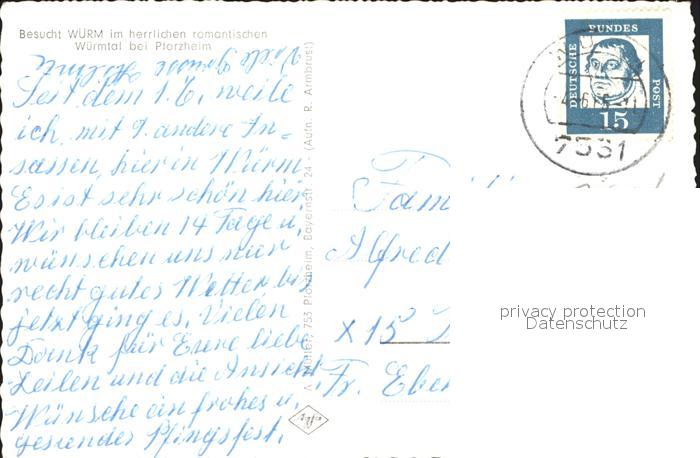 Besucht WÜRM im herrlichen romantischen
Würmtal bei Pforzheim
Viele Grüsse
Seit dem 1.6. weile
ich mit 9 andere In-
sassen, hier in Würm.
Es ist sehr schön hier.
Wir bleiben 14 Tage u.
wünschen uns nur
recht gutes Wetter bis
jetzt ging es. Vielen
Dank für Euere liebe
Zeilen und die Ansicht.
Wünsche ein frohes u.
gesundes Pfingsfest.
753 Pforzheim, Bayernstr. 24 - (Aufn. R. Armbrust)
Agfa
DEUTSCHE
BUNDES
POST
15
7531
Fam
Alfred
x 15
Fr. Eber
privacy protection
Datenschutz